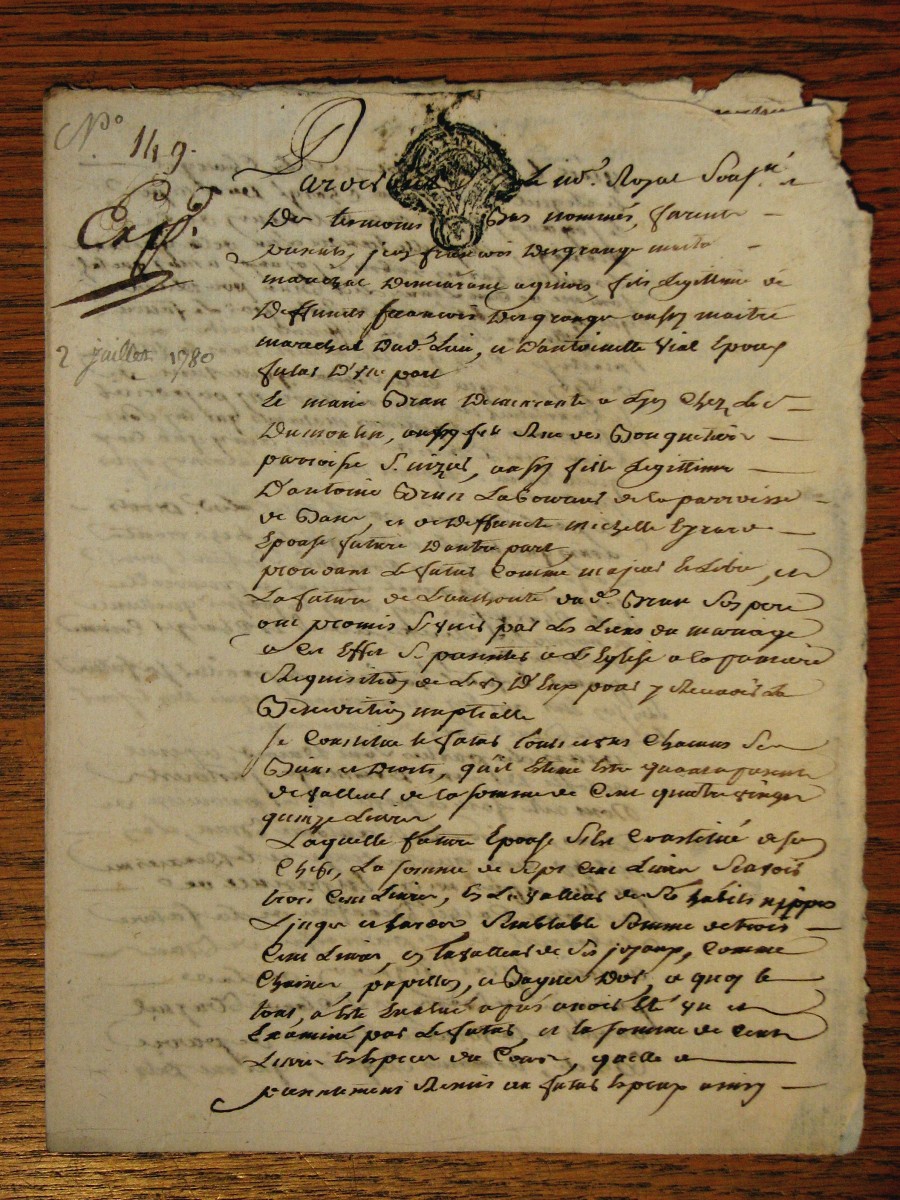 N° 149.
Exp.
2 juillet 1780
Pardevant le no.re Royal Sousigné &
Des temoins Bas nommés, furent
presents, sr françois Desgrange maitre
marechal Demeurant a givors, fils Legittime de
Deffunts françois Desgrange aussy maitre
marechal dud. Lieu, et D'antoinette Vial Epoux
futur D'une part
Et marie Brun Demeurante a Lyon Chez Le Sr
Dumoulin, rue des Bouquetiers
parroisse St nizier, aussy fille Legittime
D'antoine Brun Laboureur de la parroisse
de et de deffuncte michelle
Epouse future D'autre part,
procedant Le futur Comme majeur et Libre, et
La future de L'authorité dud. Brun Son pere
ont promis S'unir par Les Liens du mariage
a cet Effet Se presenter a L'Eglise a la premiere
Requisition de L'un D'Eux pour y Recevoir La
Benediction nuptialle
Se Constitue le futur tous et uns Chacuns Ses
Biens et Droits, qu'il Estime Estre quant a present
de valleur de la somme de Cent quatre vingt
quinze Livres
Laquelle future Epouse S'est Constitué de son
Chef, La somme de Sept Cent Livres Scavoir
trois Cent Livres, en La valleur de Ses habits nippes
Linges et hardes, Semblable Somme de trois
Cent Livres, en la valleur de Ses joyaux, Comme
Chaines, papillon, et Bagues D'or, a quoy le
tout, a Esté Evalué apres avoir Eté vu et
Examiné par Le futur, et la somme de Cent
Livres En Especes du Cours, quelle a
presentement Remis au futur Epoux ainsy